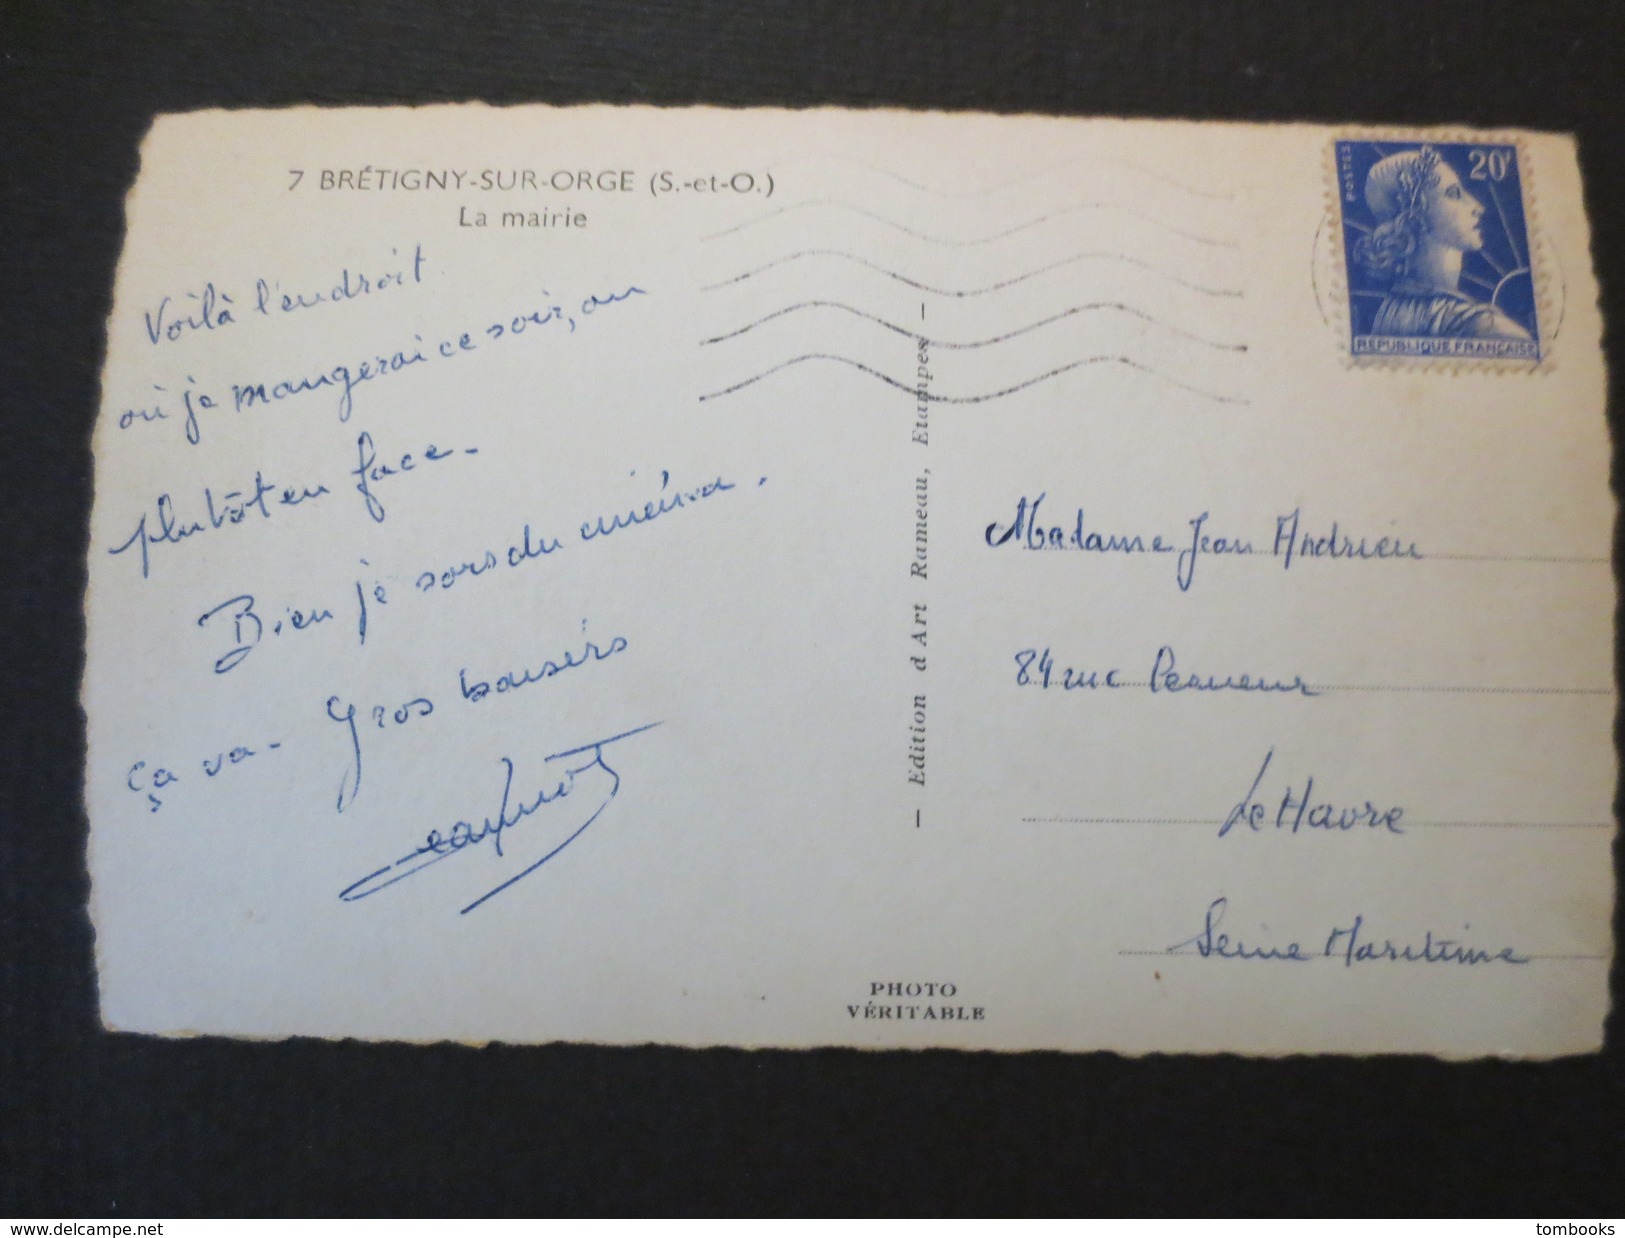 7 BRÉTIGNY-SUR-ORGE (S.-et-O.)
La mairie
Voilà l'endroit
où je mangerai ce soir, ou
plutôt en face.
Bien je sors du cinéma.
ça va - Gros baisers
— Edition d'Art Rameau, Etampes —
PHOTO
VÉRITABLE
POSTES
20F
REPUBLIQUE FRANÇAISE
Madame Jean Andrieu
84 rue
Le Havre
Seine Maritime
www.delcampe.net
tombooks